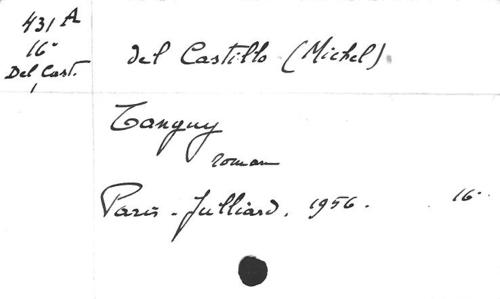 431 A
16°
Del Cast.
1
del Castillo (Michel)
Tanguy
roman
Paris - Julliard. 1956. 16°.